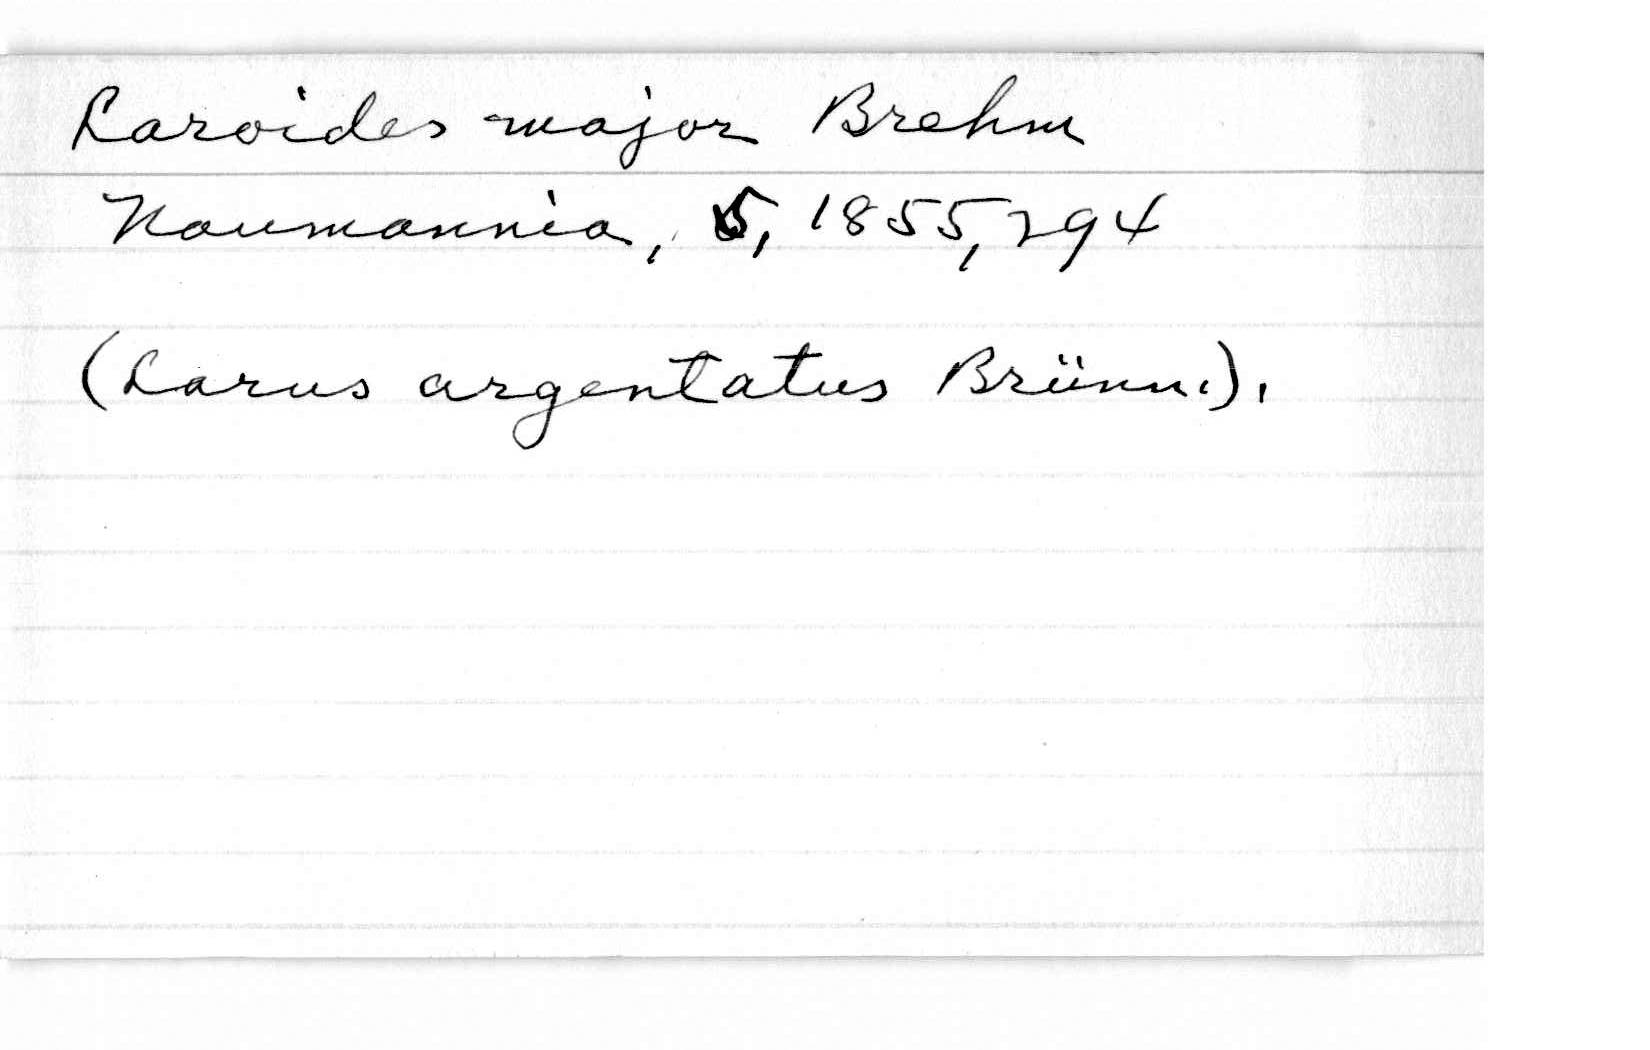 Laroides major Brehm
Naumannia, 5, 1855, 294
(Larus argentatus Brünn.).